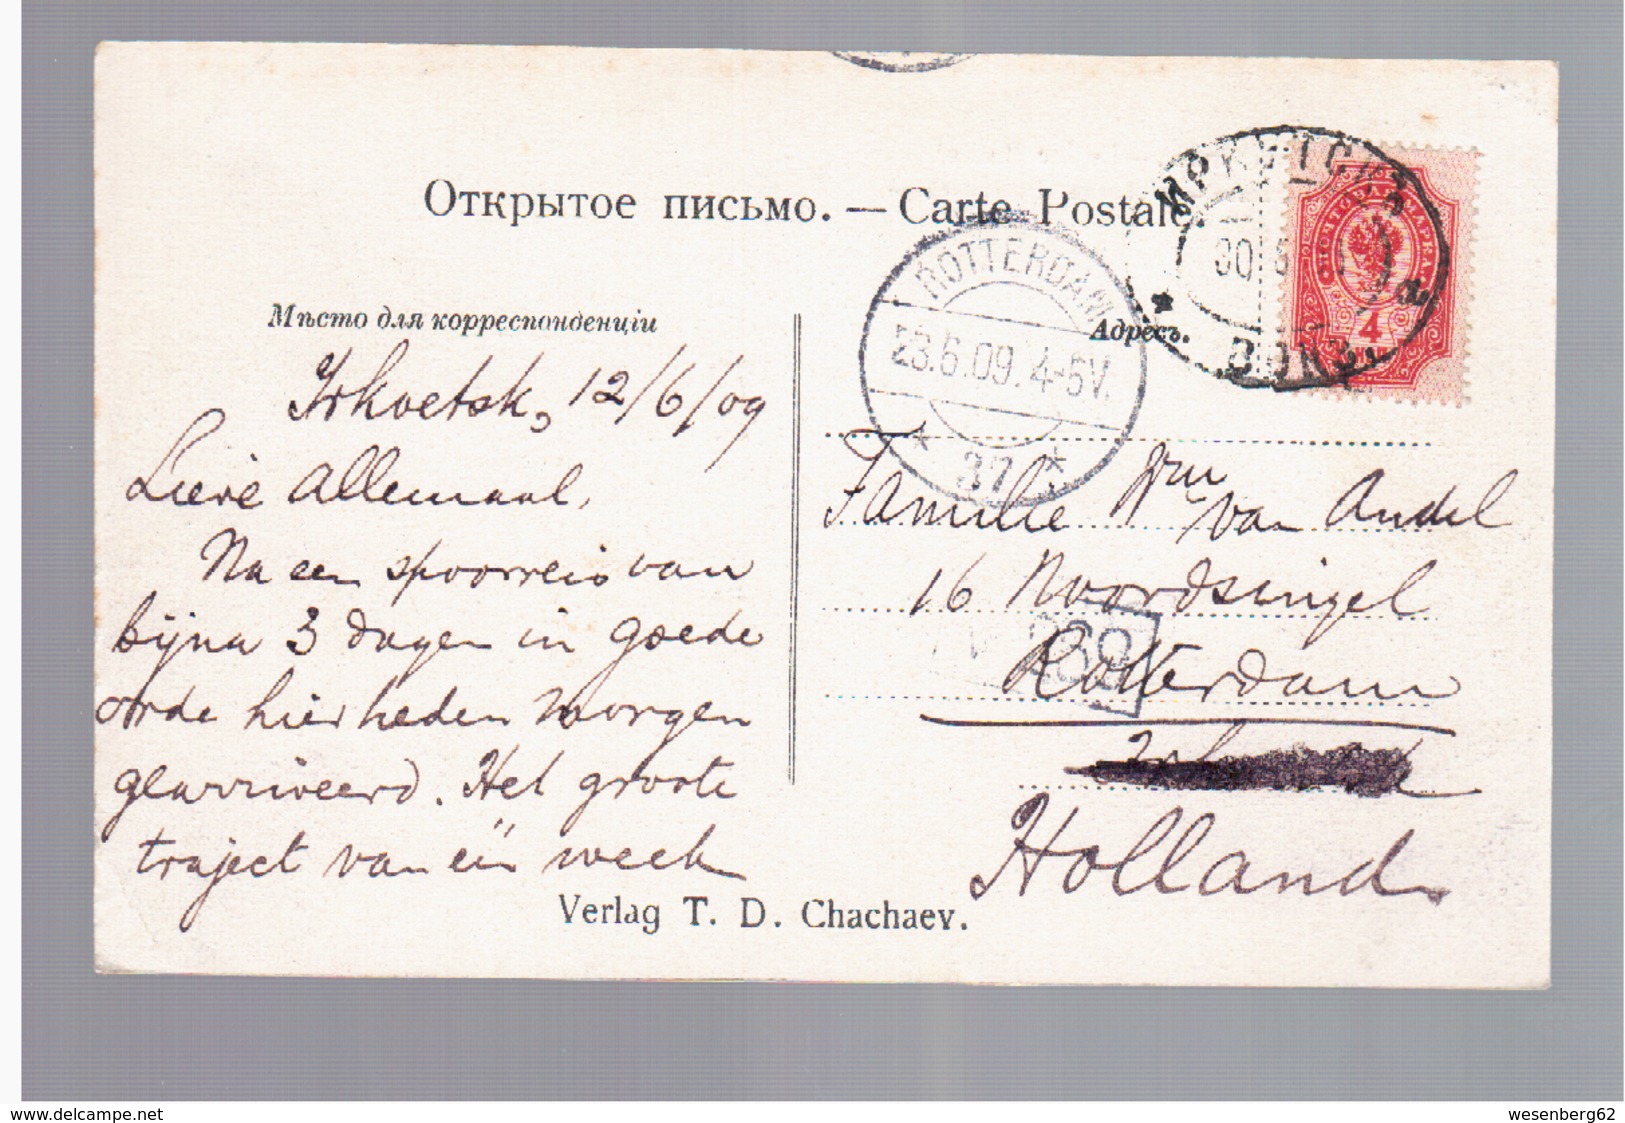 Открытое письмо. — Carte Postale.
ИРКУТСКЪ
ВОКЗ.
ПОЧТОВАЯ МАРКА.
4
ROTTERDAM
23.6.09. 4-5V.
* 37 *
Мѣсто для корреспонденціи
Адресъ.
Irkoetsk, 12/6/09
Lieve Allemaal,
Na een spoorreis van
bijna 3 dagen in goede
orde hier heden morgen
gearriveerd. Het groote
traject van één week
Familie van Andel
16 Noordsingel
Rotterdam
Holland.
Verlag T. D. Chachaev.
www.delcampe.net
wesenberg62